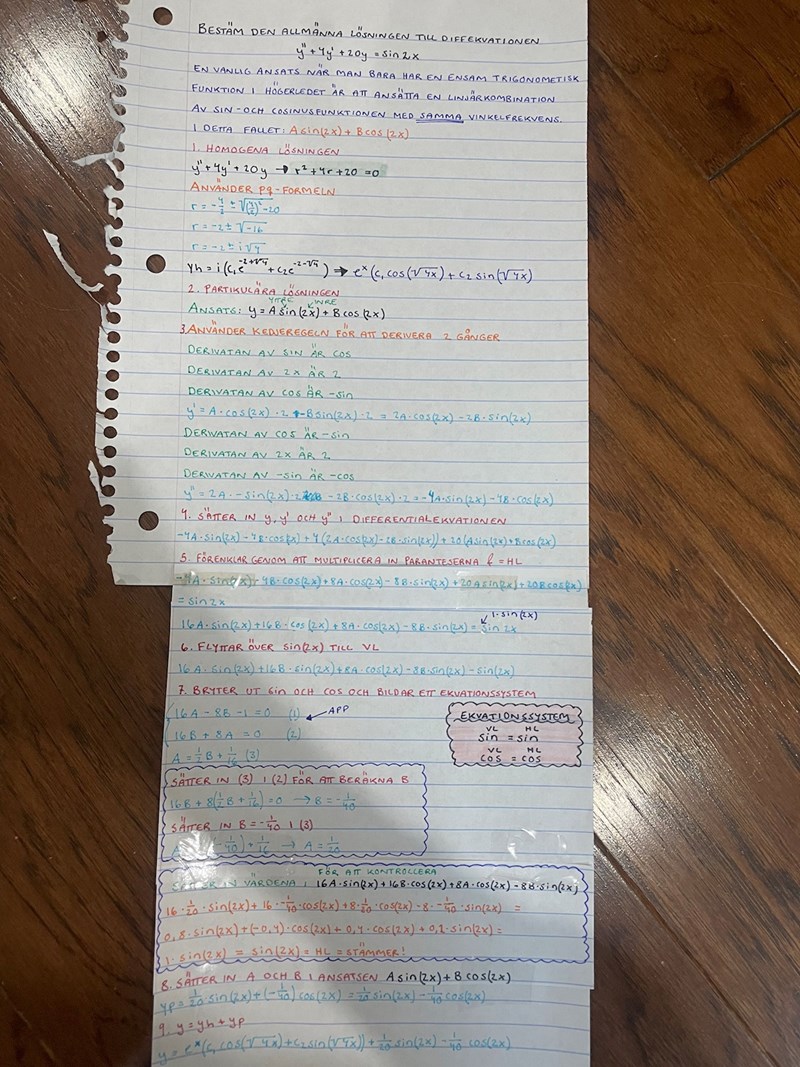 BESTÄM DEN ALLMÄNNA LÖSNINGEN TILL DIFFEKVATIONEN
y'' + 4y' + 20y = sin 2x
EN VANLIG ANSATS NÄR MAN BARA HAR EN ENSAM TRIGONOMETISK
FUNKTION I HÖGERLEDET ÄR ATT ANSÄTTA EN LINJÄRKOMBINATION
AV SIN- OCH COSINUSFUNKTIONEN MED SAMMA VINKELFREKVENS.
I DETTA FALLET: A sin(2x) + B cos(2x)
1. HOMOGENA LÖSNINGEN
y'' + 4y' + 20y → r² + 4r + 20 = 0
ANVÄNDER pq-FORMELN
r = -4/2 ± √((4/2)² - 20)
r = -2 ± √-16
r = -2 ± i√4
yh = i(C₁e^(-2+√4) + C₂e^(-2-√4)) → eˣ(C₁ cos(√4x) + C₂ sin(√4x))
2. PARTIKULÄRA LÖSNINGEN
YTTRE INRE
ANSATS: y = A sin(2x) + B cos(2x)
3. ANVÄNDER KEDJEREGELN FÖR ATT DERIVERA 2 GÅNGER
DERIVATAN AV SIN ÄR COS
DERIVATAN AV 2x ÄR 2
DERIVATAN AV COS ÄR -sin
y' = A·cos(2x)·2 + -B sin(2x)·2 = 2A·cos(2x) - 2B·sin(2x)
DERIVATAN AV COS ÄR -sin
DERIVATAN AV 2x ÄR 2
DERIVATAN AV -sin ÄR -cos
y'' = 2A·-sin(2x)·2 - 2B·cos(2x)·2 = -4A·sin(2x) - 4B·cos(2x)
4. SÄTTER IN y, y' OCH y'' I DIFFERENTIALEKVATIONEN
-4A·sin(2x) - 4B·cos(2x) + 4(2A·cos(2x) - 2B·sin(2x)) + 20(A sin(2x) + B cos(2x)
5. FÖRENKLAR GENOM ATT MULTIPLICERA IN PARANTESERNA & = HL
-4A·sin(2x) - 4B·cos(2x) + 8A·cos(2x) - 8B·sin(2x) + 20A sin(2x) + 20B cos(2x)
= sin 2x
1·sin(2x)
16A·sin(2x) + 16B·cos(2x) + 8A·cos(2x) - 8B·sin(2x) = sin 2x
6. FLYTTAR ÖVER sin(2x) TILL VL
16A·sin(2x) + 16B·sin(2x) + 8A·cos(2x) - 8B·sin(2x) - sin(2x)
7. BRYTER UT sin OCH cos OCH BILDAR ETT EKVATIONSSYSTEM
16A - 8B - 1 = 0 (1) APP
16B + 8A = 0 (2)
A = 1/2 B + 1/16 (3)
EKVATIONSSYSTEM
VL HL
sin = sin
VL HL
cos = cos
SÄTTER IN (3) I (2) FÖR ATT BERÄKNA B
16B + 8(1/2 B + 1/16) = 0 → B = -1/40
SÄTTER IN B = -1/40 I (3)
-1/40) + 1/16 → A = 1/20
FÖR ATT KONTROLLERA
SÄTTER IN VÄRDENA I 16A·sin(2x) + 16B·cos(2x) + 8A·cos(2x) - 8B·sin(2x)
16·1/20·sin(2x) + 16·-1/40·cos(2x) + 8·1/20·cos(2x) - 8·-1/40·sin(2x) =
0,8·sin(2x) + (-0,4)·cos(2x) + 0,4·cos(2x) + 0,2·sin(2x) =
1·sin(2x) = sin(2x) = HL = STÄMMER!
8. SÄTTER IN A OCH B I ANSATSEN A sin(2x) + B cos(2x)
yp = 1/20 sin(2x) + (-1/40) cos(2x) = 1/20 sin(2x) - 1/40 cos(2x)
9. y = yh + yp
y = eˣ(C₁ cos(√4x) + C₂ sin(√4x)) + 1/20 sin(2x) - 1/40 cos(2x)